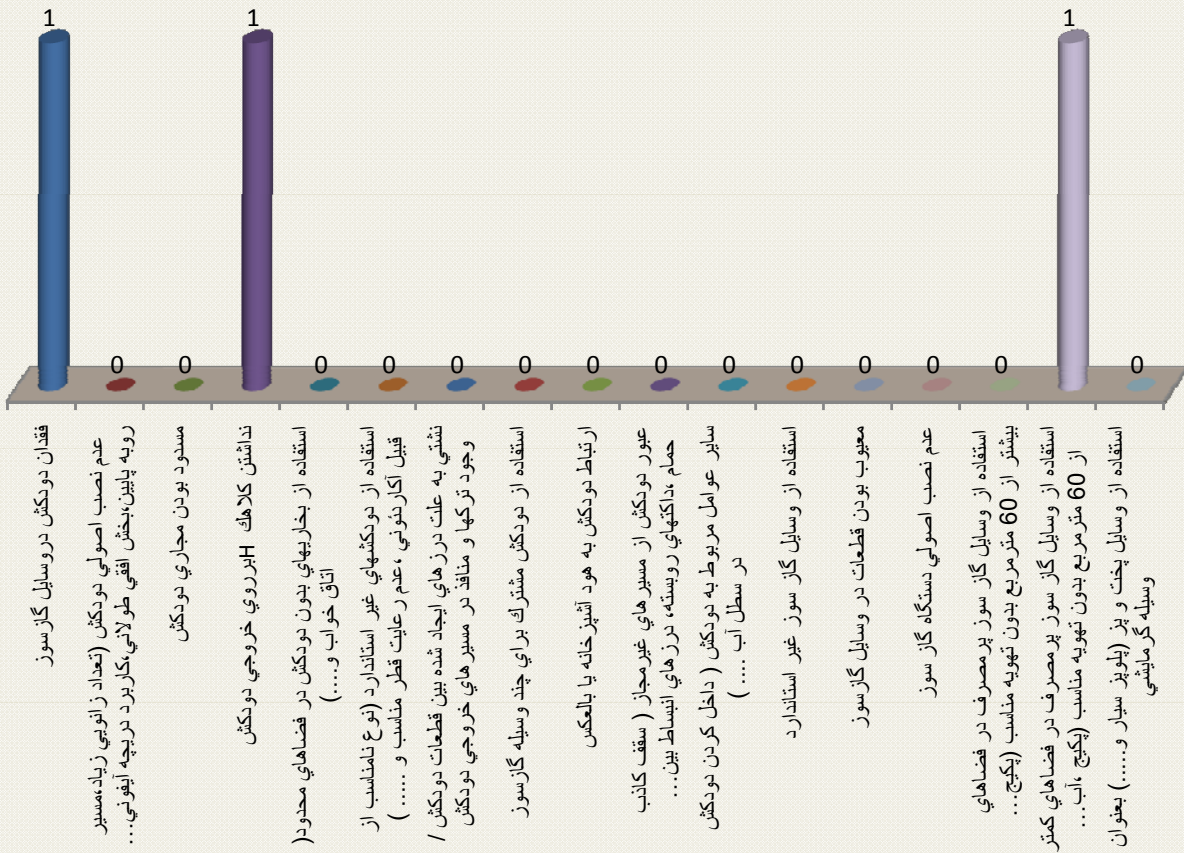 1
0
0
1
0
0
0
0
0
0
0
0
0
0
0
1
0
فقدان دودكش دروسايل گازسوز
عدم نصب اصولي دودكش (تعداد زانويي زياد،مسير
روبه پايين،بخش افقي طولاني،كاربرد دريچه آيفوني…
مسدود بودن مجاري دودكش
نداشتن كلاهك Hبرروي خروجي دودكش
استفاده از بخاريهاي بدون دودكش در فضاهاي محدود(
اتاق خواب و....)
استفاده از دودكشهاي غير استاندارد (نوع نامناسب از
قبيل آكاردئوني ،عدم رعايت قطر مناسب و ..... )
نشتي به علت درزهاي ايجاد شده بين قطعات دودكش /
وجود تركها و منافذ در مسيرهاي خروجي دودكش
استفاده از دودكش مشترك براي چند وسيله گازسوز
ارتباط دودكش به هود آشپزخانه يا بالعكس
عبور دودكش از مسيرهاي غيرمجاز ( سقف كاذب
حمام ،داكتهاي روبسته، درزهاي انبساط بين…
ساير عوامل مربوط به دودكش ( داخل كردن دودكش
در سطل آب .... )
استفاده از وسايل گاز سوز غير استاندارد
معيوب بودن قطعات در وسايل گازسوز
عدم نصب اصولي دستگاه گاز سوز
استفاده از وسايل گاز سوز پرمصرف در فضاهاي
بيشتر از 60 مترمربع بدون تهويه مناسب (پكيج…
استفاده از وسايل گاز سوز پرمصرف در فضاهاي كمتر
از 60 مترمربع بدون تهويه مناسب (پكيج ،آب…
استفاده از وسايل پخت و پز (پلوپز سيار و.....) بعنوان
وسيله گرمايشي